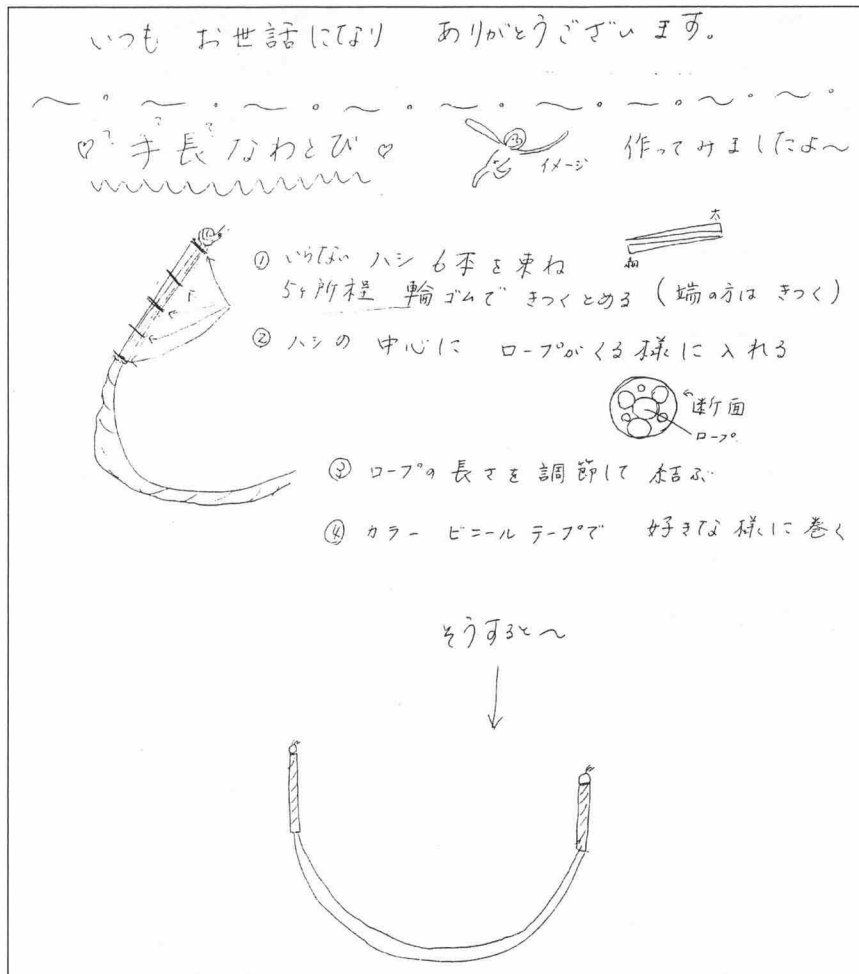 いつも お世話になり ありがとうございます。
♡手長なわとび♡
イメージ
作ってみましたよ〜
① いらない ハシ 6本を束ね
5ヶ所程 輪ゴムで きつくとめる (端の方は きつく)
太
細
② ハシの 中心に ロープがくる様に入れる
断面
ロープ
③ ロープの 長さを 調節して 結ぶ
④ カラー ビニールテープで 好きな様に巻く
そうすると〜